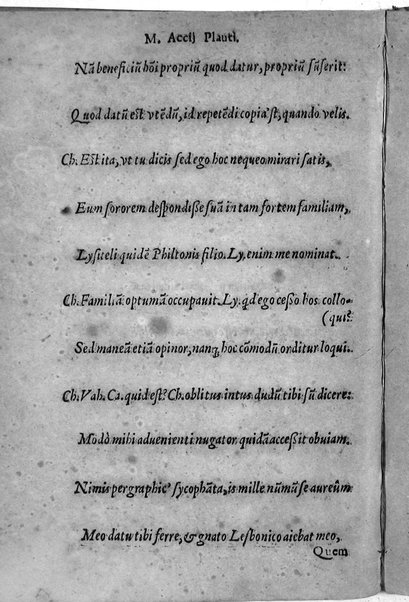 M. Accij Plauti.
Nā beneficiū hōi propriū quod datur, propriū sūserit:
Quod datū est vtēdū, id repetēdi copia'st, quando velis.
Ch. Est ita, vt tu dicis sed ego hoc nequeo mirari satis,
Eum sororem despondisse suā in tam fortem familiam,
Lysiteli quidē Philtonis filio. Ly, enim me nominat.
Ch. Familiā optumā occupauit. Ly. qd ego cesso hos collo-
(qui?
Sed maneā etiā opinor, nanq; hoc cōmodū orditur loqui.
Ch. Vah. Ca. quid est? Ch. oblitus intus dudū tibi sū dicere:
Modò mihi aduenienti nugator quidā accessit obuiam.
Nimis pergraphic' sycophāta, is mille nūmū se aureûm
Meo datu tibi ferre, & gnato Lesbonico aiebat meo,
Quem